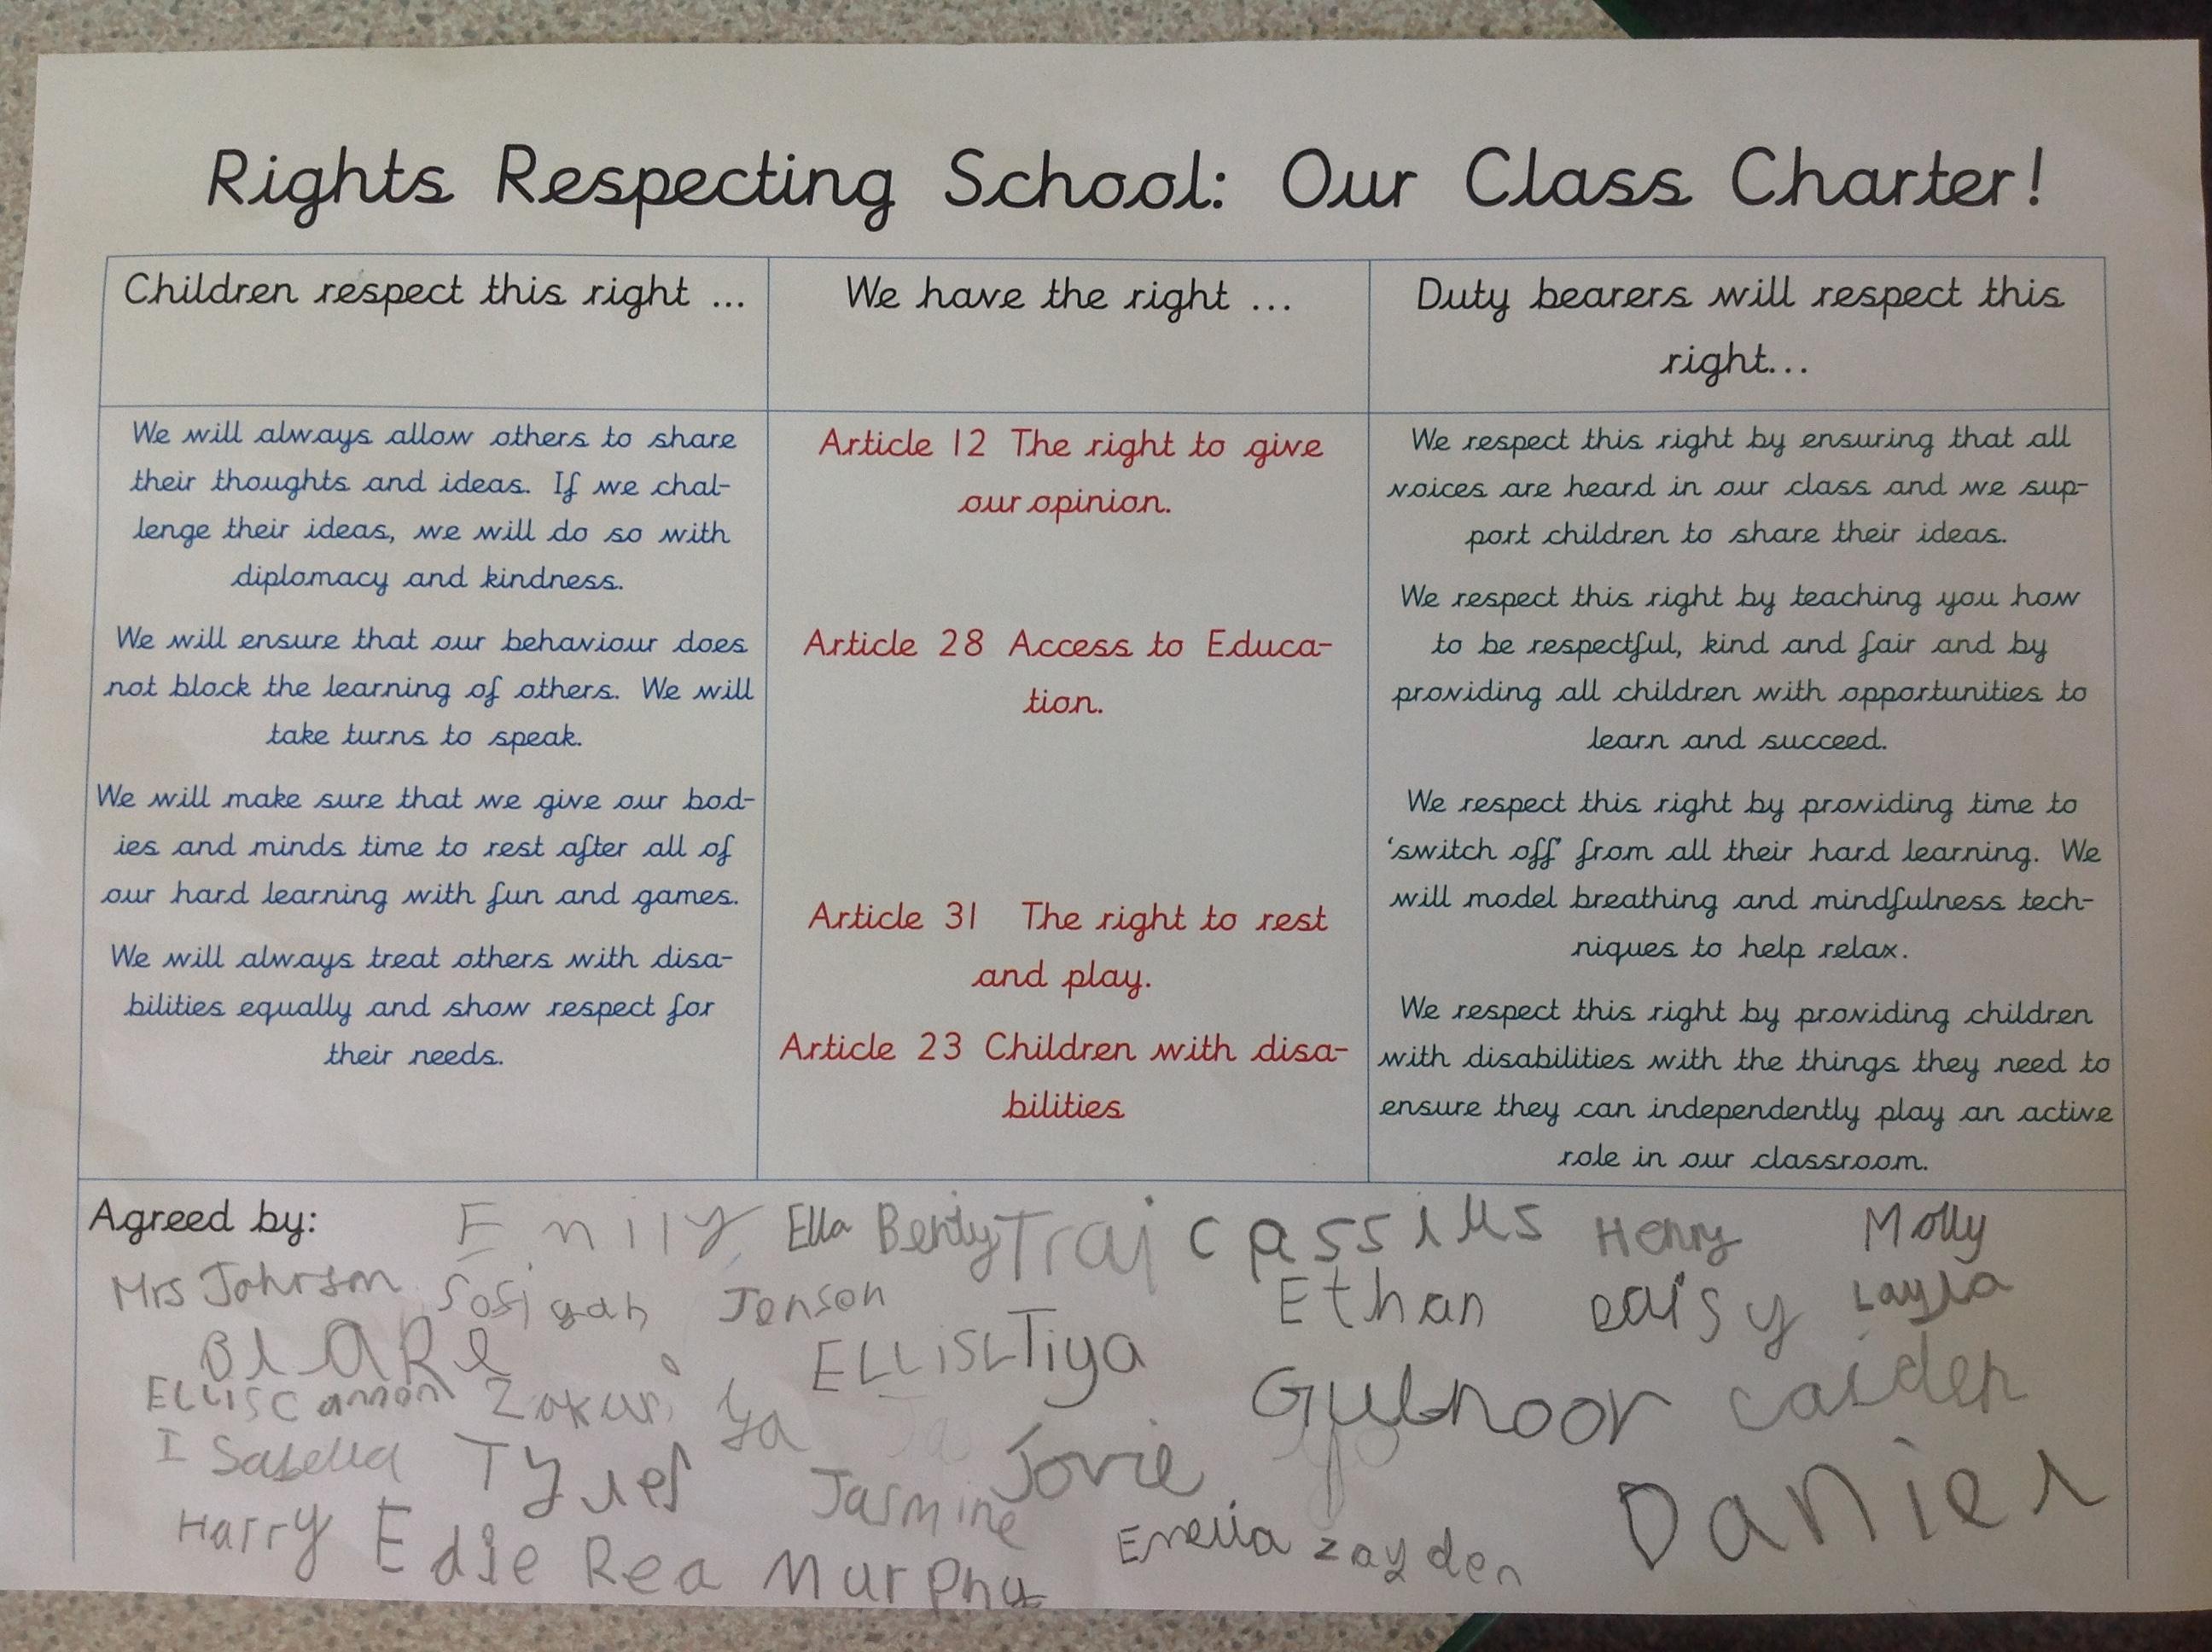 Rights Respecting School: Our Class Charter!
Children respect this right ...
We have the right ...
Duty bearers will respect this
right...
We will always allow others to share
their thoughts and ideas. If we chal-
lenge their ideas, we will do so with
diplomacy and kindness.
We will ensure that our behaviour does
not block the learning of others. We will
take turns to speak.
We will make sure that we give our bod-
ies and minds time to rest after all of
our hard learning with fun and games.
We will always treat others with disa-
bilities equally and show respect for
their needs.
Article 12 The right to give
our opinion.
Article 28 Access to Educa-
tion.
Article 31 The right to rest
and play.
Article 23 Children with disa-
bilities
We respect this right by ensuring that all
voices are heard in our class and we sup-
port children to share their ideas.
We respect this right by teaching you how
to be respectful, kind and fair and by
providing all children with opportunities to
learn and succeed.
We respect this right by providing time to
‘switch off’ from all their hard learning. We
will model breathing and mindfulness tech-
niques to help relax.
We respect this right by providing children
with disabilities with the things they need to
ensure they can independently play an active
role in our classroom.
Agreed by: Ella Traj cassius Henry Molly
Mrs Johnson Jenson Ethan Daisy Layla
Tiya
Gulnoor
Isabella Jovie
Jasmine Daniel
Harry Edie Rea Murphy zayden